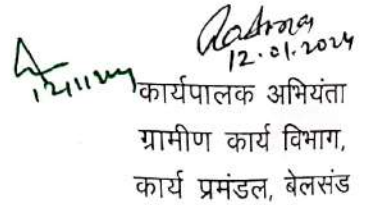 12.01.2024
कार्यपालक अभियंता
ग्रामीण कार्य विभाग,
कार्य प्रमंडल, बेलसंड